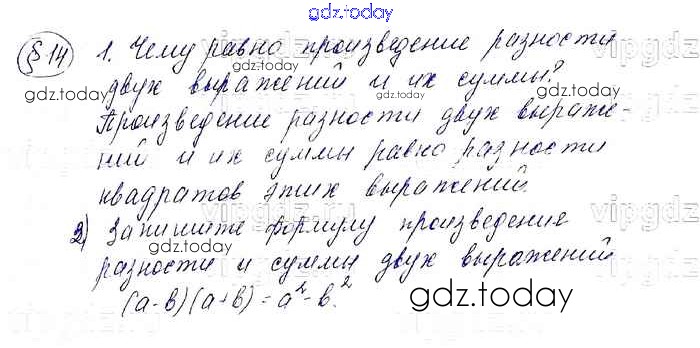 gdz.today
§ 14 1. Чему равно произведение разности
двух выражений и их суммы?
gdz.today gdz.today
Произведение разности двух выраже-
ний и их суммы равно разности
квадратов этих выражений.
2) Запишите формулу произведения
gdz.today gdz.today
разности и суммы двух выражений
(а-в)(а+в)=а²-в².
gdz.today